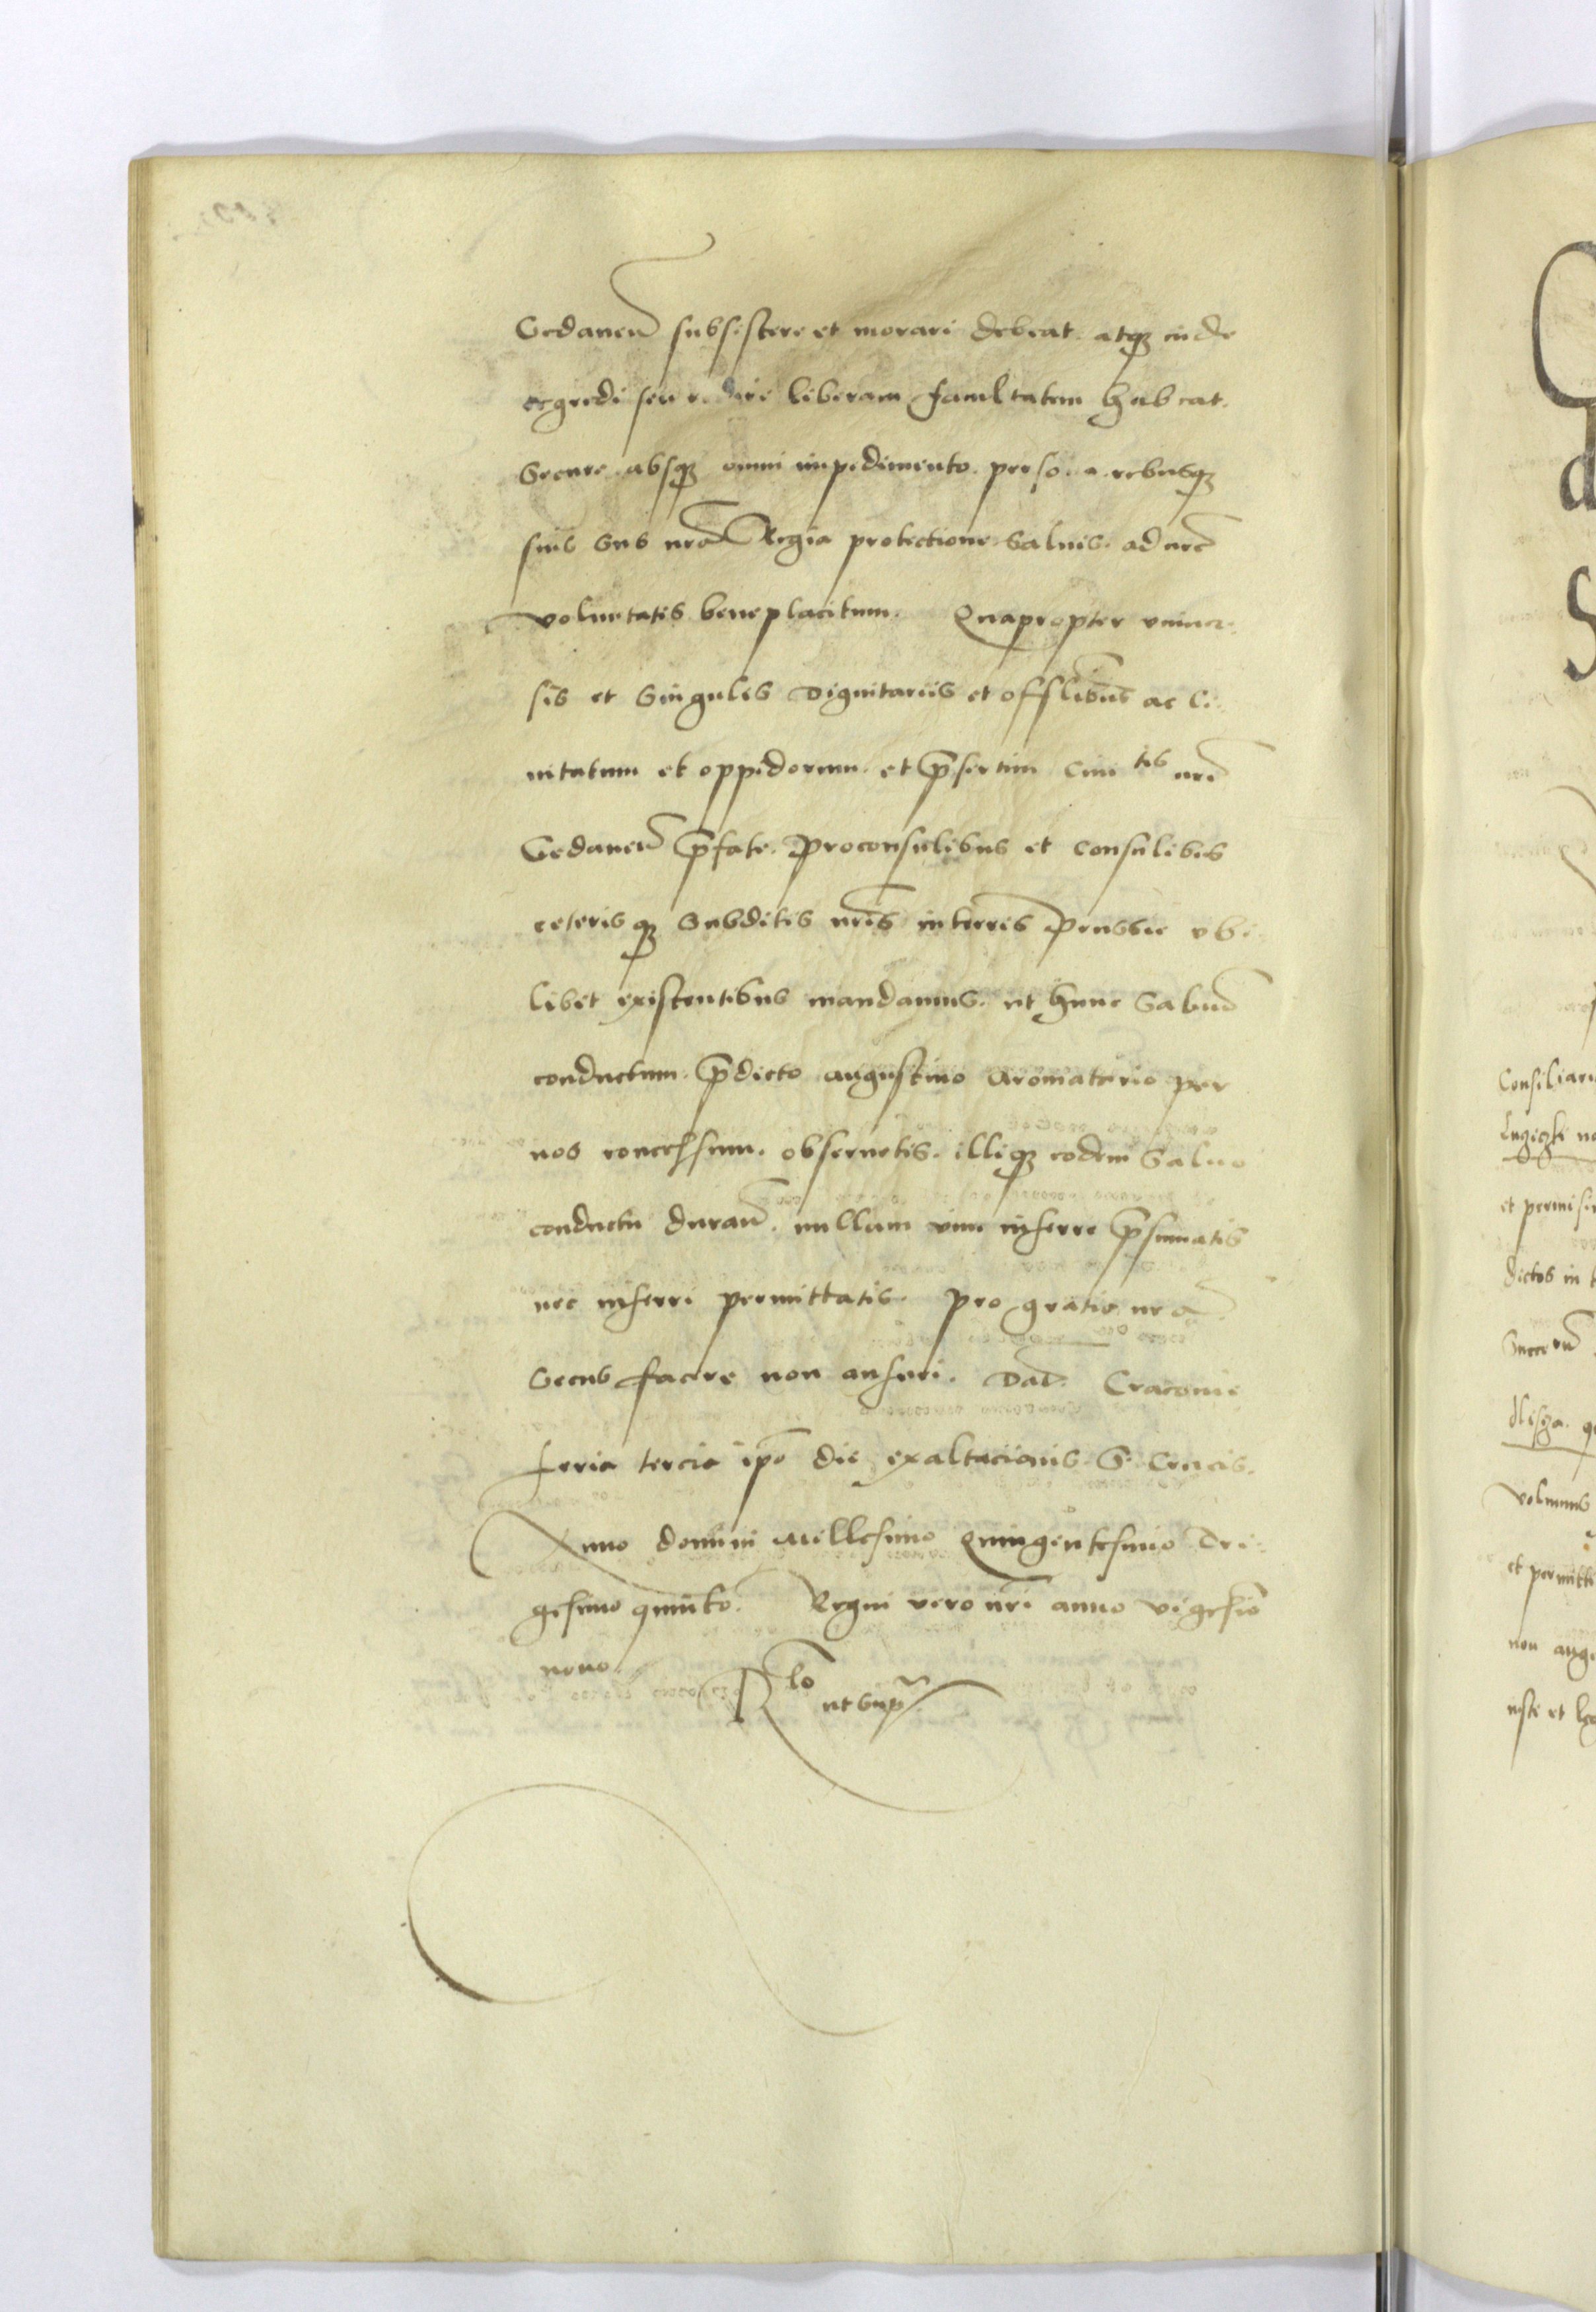 Gedanen subsistere et morari debeat. atq inde
egredi seu redire liberam facultatem habeat.
Secure. absq omni impedimento. perso a rebusq
suis sub nra Regia protectione salvis. ad nre
voluntatis beneplacitum. Quapropter univer
sis et singulis Dignitariis et offlibus ac Ci
vitatum et oppidorum. et psertim Civitis nre
Gedanen pfate. Proconsulibus et Consulibus
ceterisq Subditis nris in terris Prussie ubi
libet existentibus mandamus. ut hunc Salvu
conductum. pdicto augustino Aromatario per
nos concessum. observetis. illiq eodem Salvo
conductu duran. nullam vim inferre psumatis
nec inferri permittatis. pro gratia nra
Secus facere non ausuri. Dat. Cracovie
feria tercia ipo die exaltacionis S. Crucis.
Anno domini Millesimo Quingentesimo Tri
gesimo quinto. Regni vero nri anno vigesio
nono.
Rlo ut sup
Consiliari
et permisi
dictos in
volumus
et permitti
non ang
iuste et